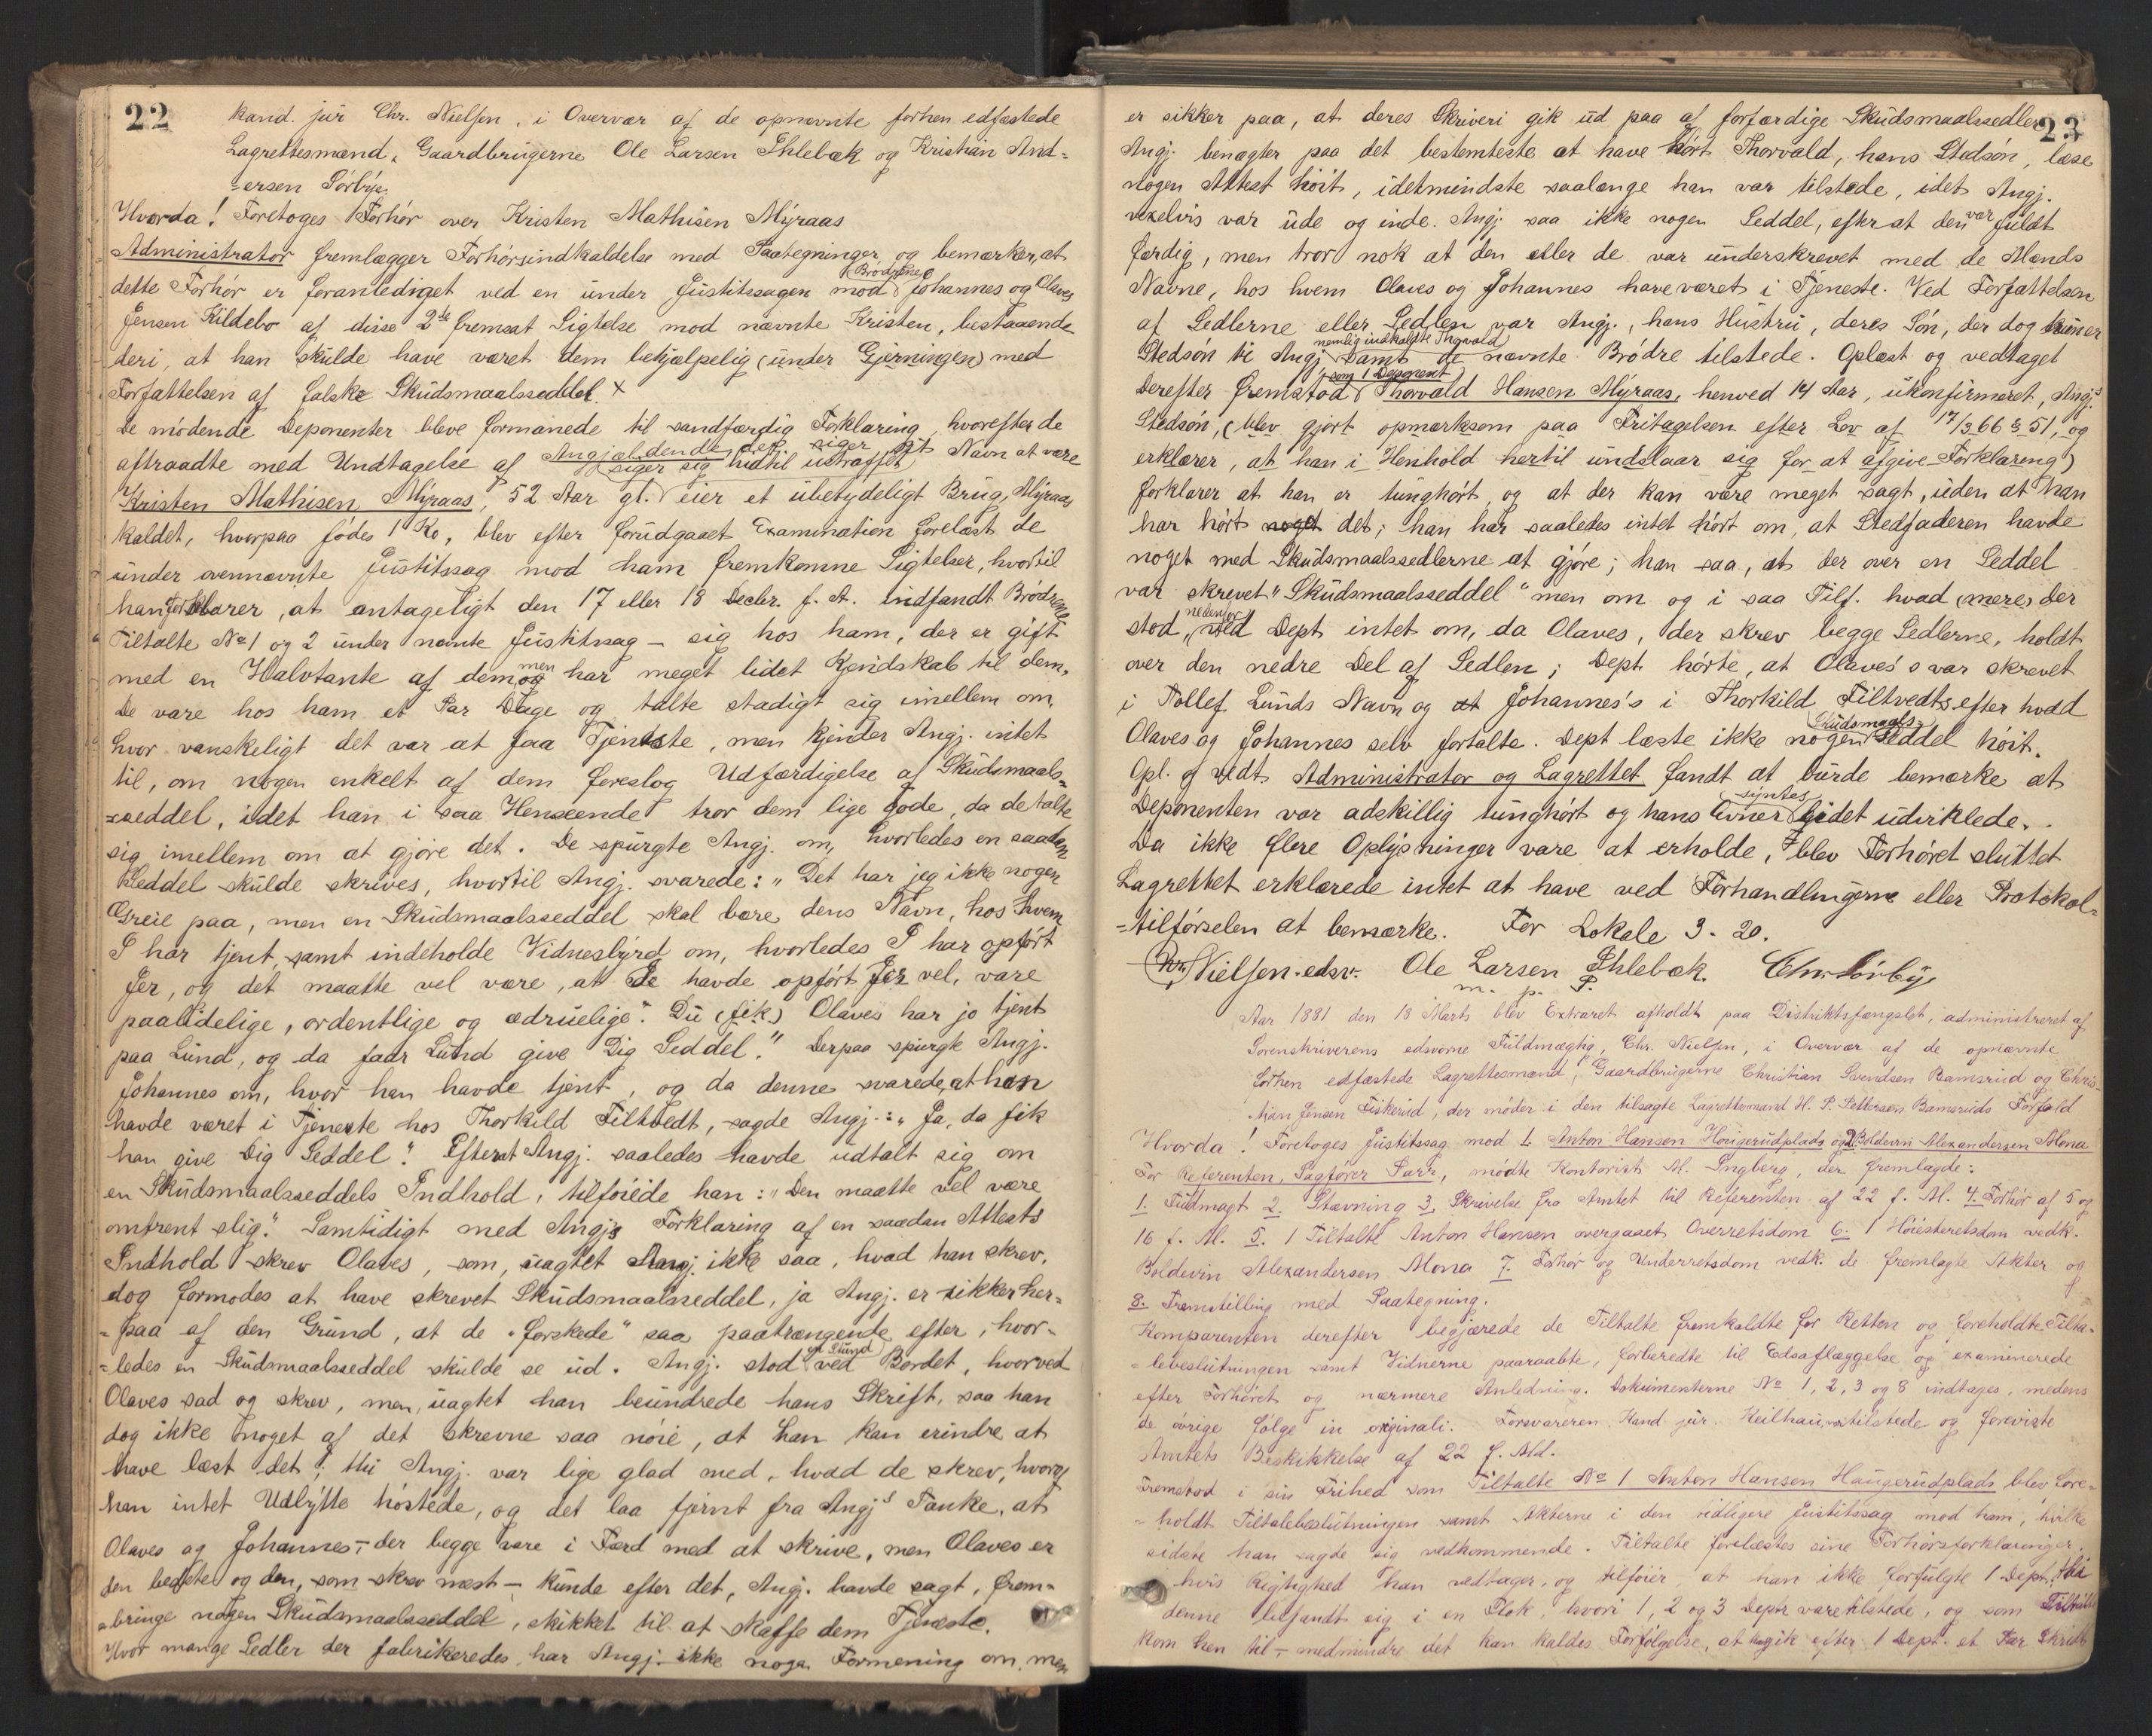 22
kand. jur Chr. Nielsen, i Overvær af de opnævnte forhen edfæstede
Lagrettesmænd, Gaardbrugerne Ole Larsen Ihlebæk og Kristian And-
-ersen Sörby.
Hvorda! Foretoges Forhör over Kristen Mathisen Myraas
Administrator fremlægger Forhörsindkaldelse med Paategninger og bemærker, at
dette Forhör er foranlediget ved en under Justitssagen mod Brödrene Johannes og Olaves
Jensen Kildebo af disse 2de fremsat Sigtelse mod nævnte Kristen, bestaaende
deri, at han skulde have været dem behjælpelig (under Gjerningen) med
Forfattelsen af falske Skudsmaalsseddel X
De mödende Deponenter bleve formanede til sandfærdig Forklaring, hvorefter de
aftraadte med Undtagelse af Angjældende, der siger sit Navn at være
(siger sig hidtil ustraffet)
Kristen Mathisen Myraas, 52 Aar gl. eier et ubetydeligt Brug, Myraas
kaldet, hvorpaa födes 1 Ko, blev efter forudgaaet Examination forelæst de
under ovennævnte Justitssag mod ham fremkomne Sigtelser, hvortil
han forklarer, at antageligt den 17 eller 18 Decbr. f. A. indfandt Brödrene
Tiltalte No 1 og 2 under nævnte Justitssag – sig hos ham, der er gift
med en Halvtante af dem, men har meget lidet Kjendskab til dem,
De vare hos ham et Par Dage og talte stadigt sig imellem om,
hvor vanskeligt det var at faa Tjeneste, men kjender Angj. intet
til, om nogen enkelt af dem foreslog Udfærdigelse af Skudsmaals-
-seddel, idet han i saa Henseende tror dem lige gode, da de talte
sig imellem om at gjöre det. De spurgte Angj. om, hvorledes en saadan
Seddel skulde skrives, hvortil Angj. svarede: "Det har jeg ikke nogen
Greie paa, men en Skudsmaalsseddel skal bære dens Navn, hos hvem
I har tjent, samt indeholde Vidnesbyrd om, hvorledes I har opfört
Jer, og det maatte vel være, at De havde opfört Jer vel, vare
paalidelige, ordentlige og ædruelige". Du (fik) Olaves har jo tjent
paa Lund, og da faar Lund give Dig Seddel." Derpaa spurgte Angj.
Johannes om, hvor han havde tjent, og da denne svarede, at han
havde været i Tjeneste hos Thorkild Tiltvedt, sagde Angj.: "Ja, da fik
han give Dig Seddel". Efterat Angj. saaledes havde udtalt sig om
en Skudsmaalsseddels Indhold, tilföiede han: "Den maatte vel være
omtrent slig". Samtidigt med Angjs Forklaring af en saadan Attests
Indhold skrev Olaves, som, uagtet Angj. ikke saa, hvad han skrev,
dog formodes at have skrevet Skudsmaalsseddel, ja Angj. er sikker her-
-paa af den Grund, at de "forskede" saa paatrængende efter, hvor-
-ledes en Skudsmaalsseddel skulde se ud. Angj. stod en Stund ved Bordet, hvorved
Olaves sad og skrev, men, uagtet han beundrede hans Skrift, saa han
dog ikke noget af det skrevne saa nöie, at han kan erindre at
have læst det; thi Angj. var lige glad med, hvad de skrev, hvoraf
han intet Udbytte höstede, og det laa fjernt fra Angjs Tanke, at
Olaves og Johannes – der begge vare i Færd med at skrive, men Olaves er
den bedste og den, som skrev mest – kunde efter det, Angj. havde sagt, frem-
-bringe nogen Skudsmaalsseddel, skikket til at skaffe dem Tjeneste.
Hvor mange Sedler der fabrikeredes, har Angj. ikke nogen Formening om, men
23
er sikker paa, at deres Skriveri gik ud paa at forfærdige Skudsmaalssedler
Angj. benægter paa det bestemteste at have hört Thorvald, hans Stedsön, læse
nogen Attest höit, idetmindste saalænge han var tilstede, idet Angj.
vexelvis var ude og inde. Angj. saa ikke nogen Seddel, efter at den var fuldt
færdig, men tror nok at den eller de var underskrevet med de Mænds
Navne, hos hvem Olaves og Johannes have været i Tjeneste. Ved Forfattelsen
af Sedlerne eller Sedlen var Angj., hans Hustru, deres Sön, der dog kun er
Stedsön til Angj. nemlig indkaldte Thorvald samt de nævnte Brödre tilstede. Oplæst og vedtaget
Derefter fremstod som 1 Deponent Thorvald Hansen Myraas, henved 14 Aar, ukonfirmeret, Angjs
Stedsön, (blev gjort opmærksom paa Fritagelsen efter Lov af 17/3 66 § 51, og
erklærer, at han i Henhold hertil undslaar sig for at afgive Forklaring)
forklarer at han er tunghört, og at der kan være meget sagt, uden at han
har hört noget det; han har saaledes intet hört om, at Stedfaderen havde
noget med Skudsmaalssedlerne at gjöre; han saa, at der over en Seddel
var skrevet "Skudsmaalsseddel" men om og i saa Tilf. hvad (mere) der
stod nedenfor, ved Dept intet om, da Olaves, der skrev begge Sedlerne, holdt
over den nedre Del af Sedlen; Dept hörte, at Olaves's var skrevet
i Tollef Lunds Navn og at Johannes's i Thorkild Tiltvedts, efter hvad
Olaves og Johannes selv fortalte. Dept læste ikke nogen Skudsmaals-Seddel höit.
Opl. og vedt. Administrator og Lagrettet fandt at burde bemærke at
Deponenten var adskillig tunghört og hans Evner syntes lidet udviklede.
Da ikke flere Oplysninger vare at erholde, blev Forhöret sluttet
Lagrettet erklærede intet at have ved Forhandlingerne eller Protokol-
-tilförselen at bemærke. For Lokale 3-20.
Chr. Nielsen edsv. Ole Larsen Ihlebæk. Chr Sörby
m. p. P.
Aar 1881 den 18 Marts blev Extraret afholdt paa Distriktsfængslet, administreret af
Sorenskriverens edsvorne Fuldmægtig, Chr. Nielsen, i Overvær af de opnævnte
forhen edfæstede Lagrettesmænd, Gaardbrugerne Christian Svendsen Bamsrud og Chris-
-tian Jensen Fiskerud, der möder i den tilsagte Lagrettesmand H. P. Pettersen Bamsruds Forfald
Hvorda! Foretoges Justitssag mod 1. Anton Hansen Haugerudplads og 2 Boldevin Alexandersen Mona
For Referenten, Sagförer Parr, mödte Kontorist M. Engberg, der fremlagde:
1. Fuldmagt 2. Stævning 3. Skrivelse fra Amtet til Referenten af 22 f. M. 4. Forhör af 5 og
16 f. M. 5. 1 Tiltalte Anton Hansen overgaaet Overretsdom 6. 1 Höiesteretsdom vedk.
Boldevin Alexandersen Mona 7. Forhör og Underretsdom vedk. de fremlagte Akter og
8. Fremstilling med Paategning.
Komparenten derefter begjærede de Tiltalte fremkaldte for Retten og foreholdte Tilta-
-lebeslutningen samt Vidnerne paaraabte, forberedte til Edsaflæggelse og examinerede
efter Forhöret og nærmere Anledning. Dokumenterne No 1, 2, 3 og 8 indtages, medens
de övrige fölge in originali. Forsvareren, Kand jur. Keilhau, var tilstede og foreviste
Amtets Beskikkelse af 22 f. Md.
Fremstod i sin Frihed som Tiltalte No 1 Anton Hansen Haugerudplads blev fore-
-holdt Tiltalebeslutningen samt Akterne i den tidligere Justitssag mod ham, hvilke
sidste han sagde sig vedkommende. Tiltalte forelæstes sine Forhörsforklaringer,
hvis Rigtighed han vedtager, og tilföier, at han ikke forfulgte 1 Dept. thi
denne befandt sig i en Flok, hvori 1, 2 og 3 Depts vare tilstede, og som Tiltalte
kom hen til – medmindre det kan kaldes Forfölgelse, at han gik efter 1 Dept. et Par Skridt